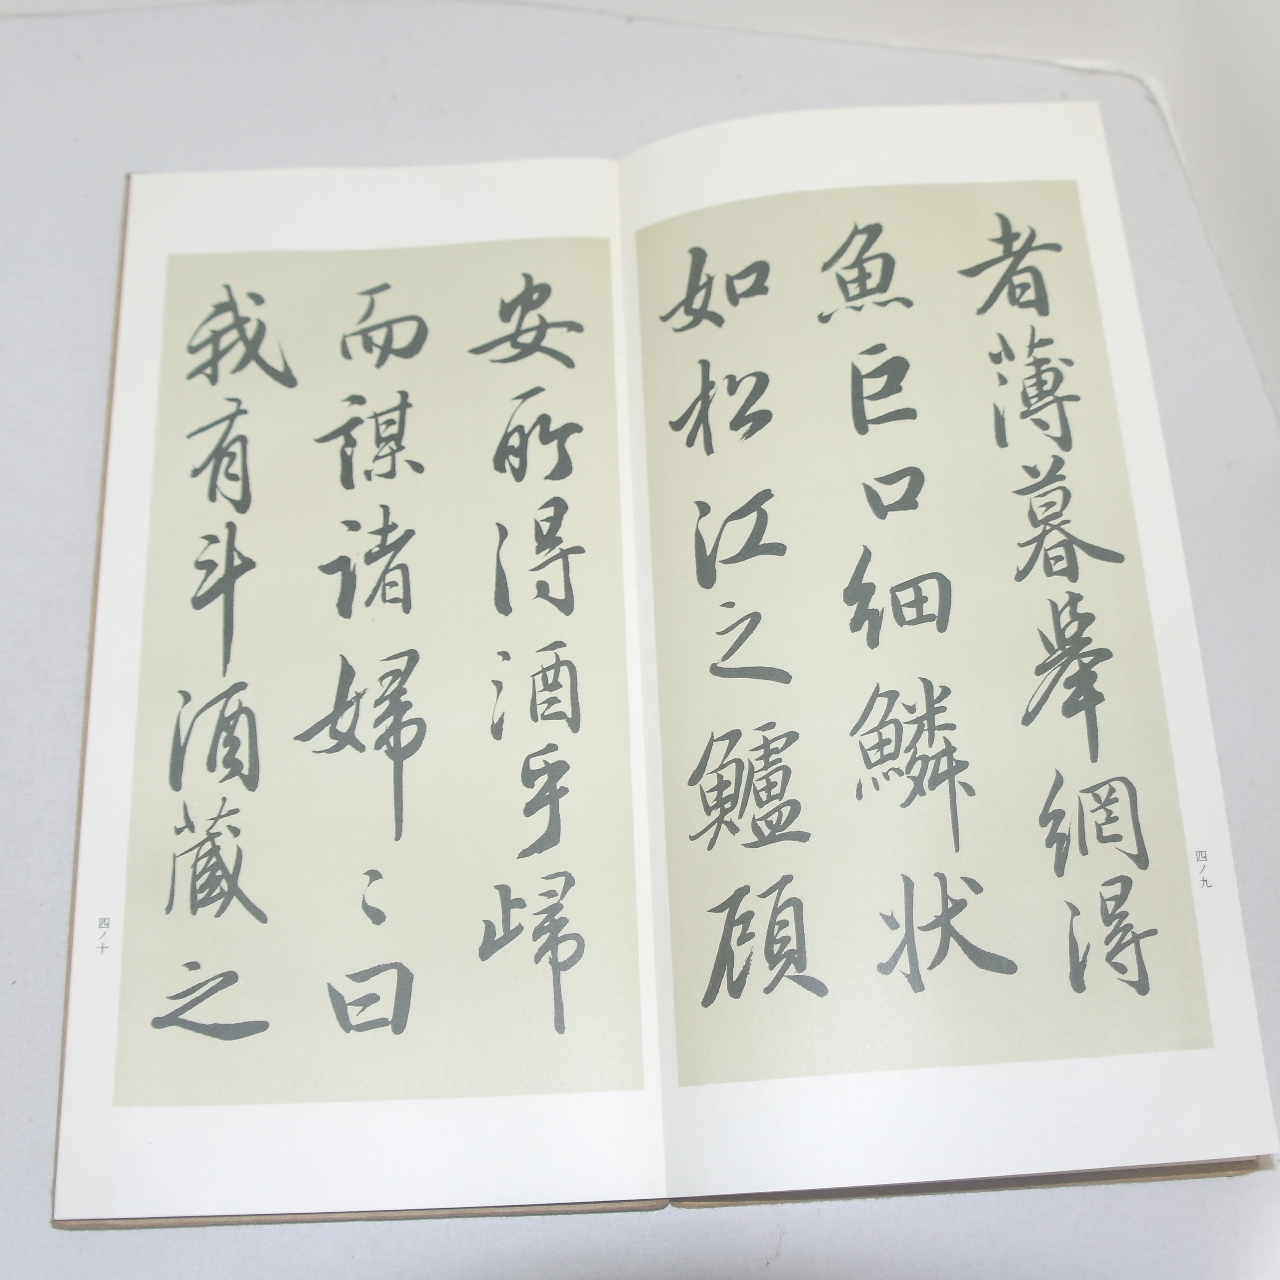 者薄暮舉網得
魚巨口細鱗狀
如松江之鱸顧
四ノ九
安所得酒乎歸
而謀諸婦〻曰
我有斗酒藏之
四ノ十